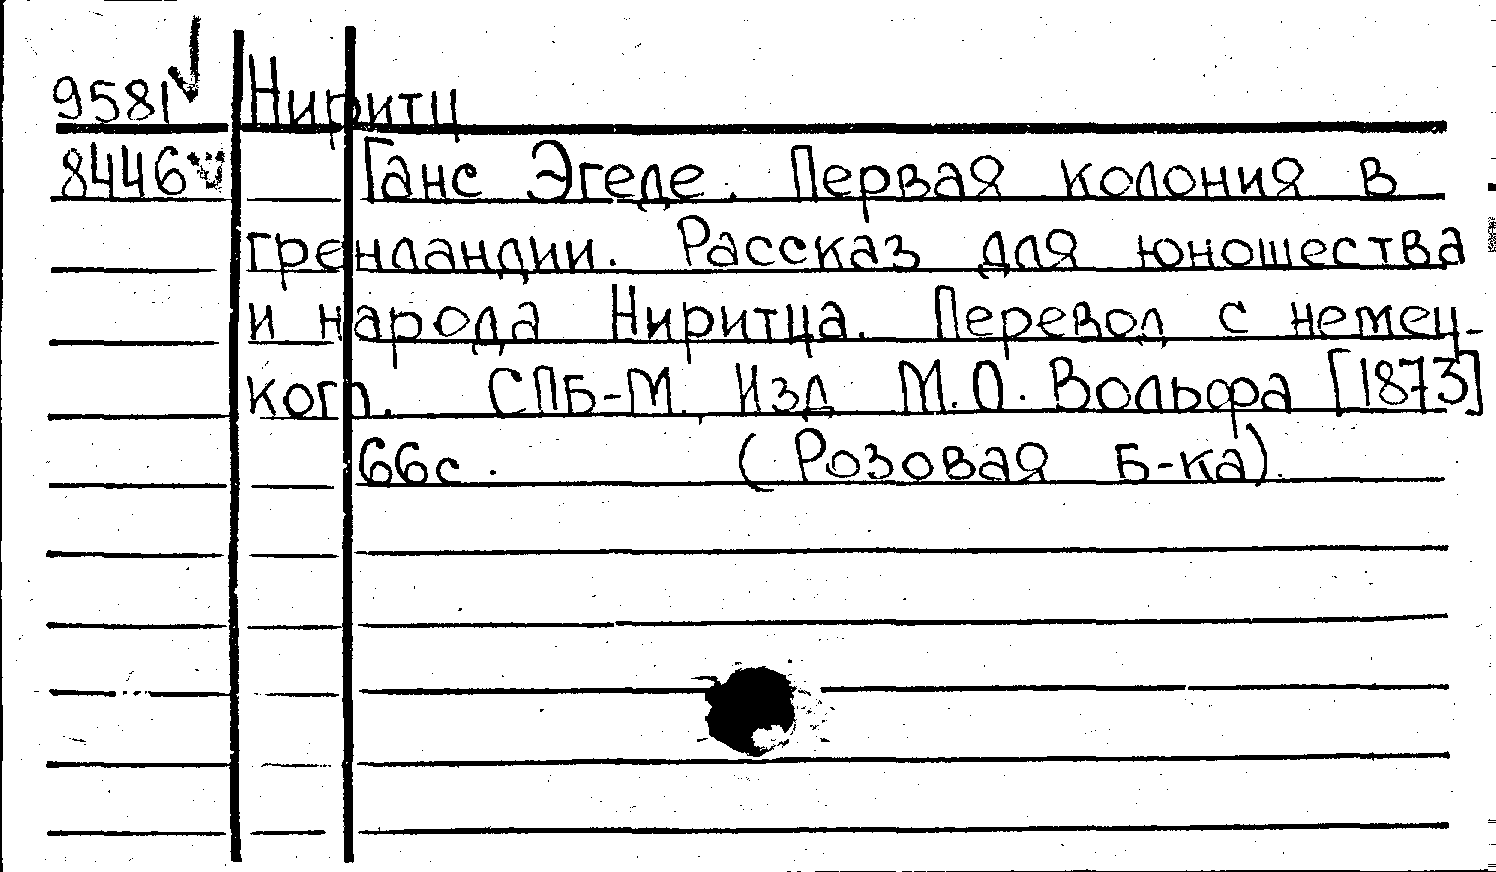 9581 Ниритц
8446 Ганс Эгеде. Первая колония в
гренландии. Рассказ для юношества
и народа Ниритца. Перевод с немец-
кого. СПБ-М. Изд М.О. Вольфа [1873]
66с. (Розовая Б-ка).